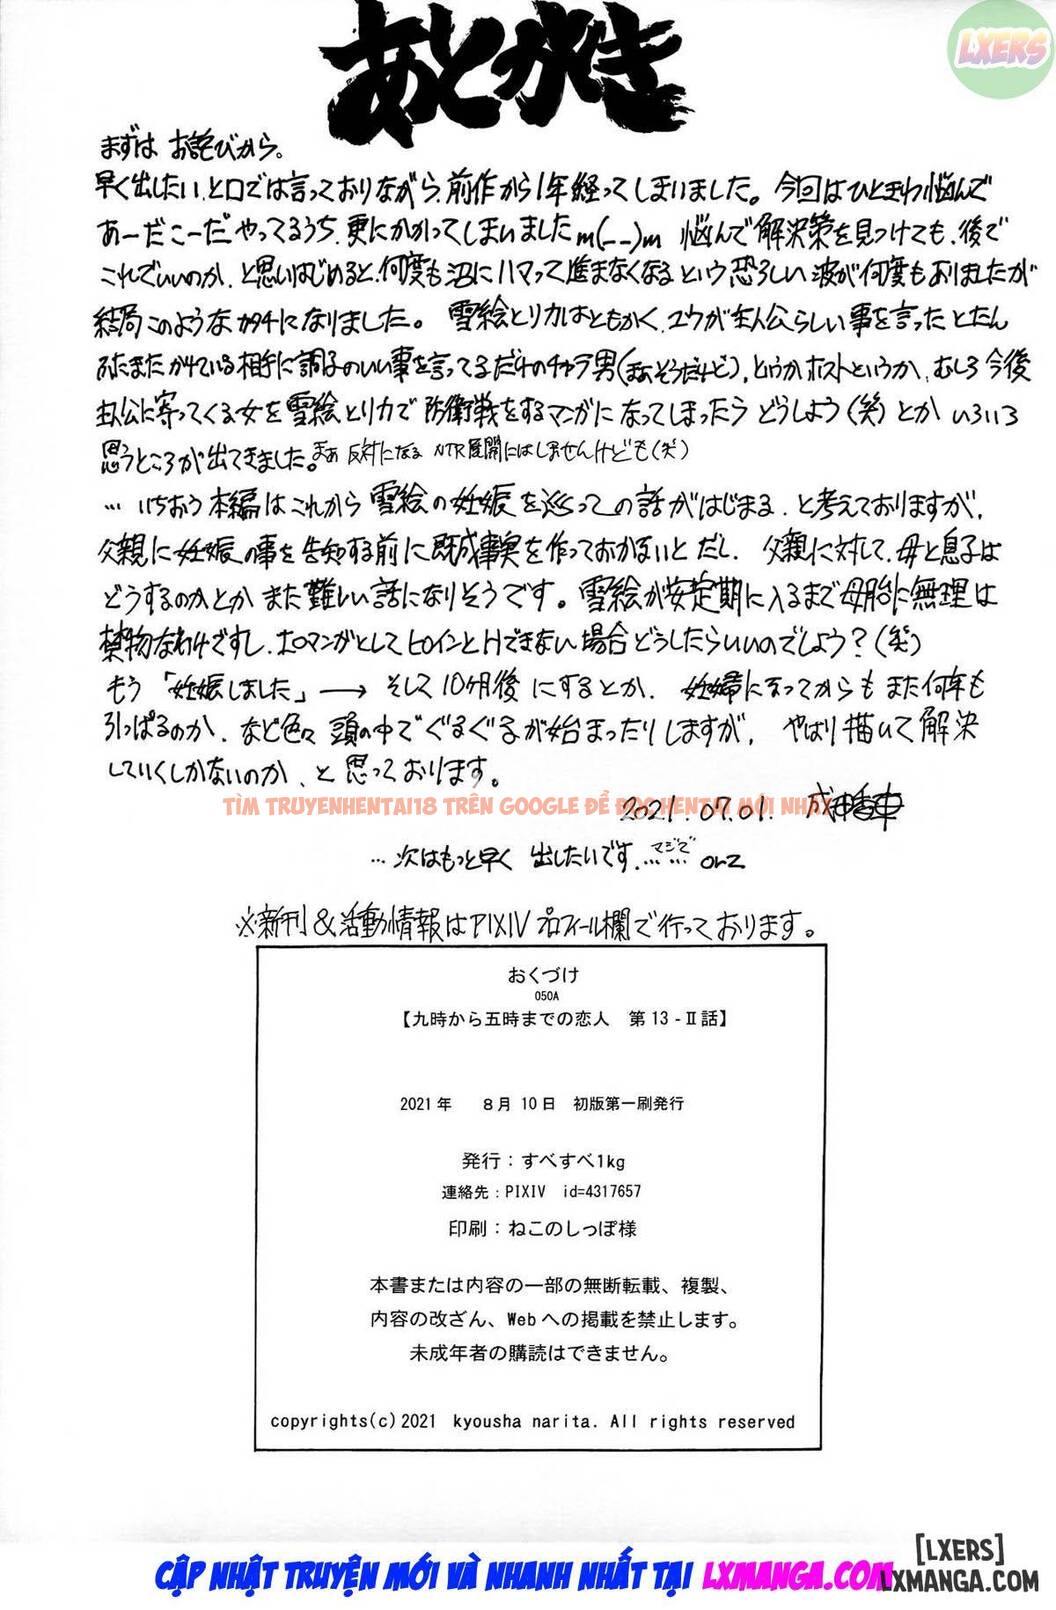 LXERS
あとがき
まずは お詫びから。
早く出したい、と口では言っておりながら、前作から1年経ってしまいました。今回はひときわ悩んで
あーだこーだ やってるうち、更にかかってしまいました m(_ _)m 悩んで解決策を見つけても、後で
これでいいのか、と思いはじめると、何度も沼にハマって進まなくなる という恐ろしい波が何度もありましたが
結局このような カタチになりました。 雪絵とリカはともかく、ユウが主人公らしい事を言ったとたん
ふたまたかけている相手に調子のいい事を言ってるだけのチャラ男(まあそうだけど)、というかホストというか、むしろ今後
主人公に寄ってくる女を雪絵とリカで防衛戦をするマンガになってしまったらどうしよう(笑)とか いろいろ
思うところが出てきました。まあ 反対になる NTR展開にはしませんけども(笑)
… いちおう本編はこれから 雪絵の妊娠を巡っての話がはじまる、と考えておりますが、
父親に妊娠の事を告知する前に既成事実を作っておかないと だし、父親に対して、母と息子は
どうするのかとか また難しい話になりそうです。雪絵が安定期に入るまで母胎に無理は
禁物なわけですし、エロマンガとしてヒロインとHできない場合どうしたらいいのでしょう?(笑)
もう「妊娠しました」→ そして10ヶ月後 にするとか、妊婦になってからも また何年も
引っぱるのか、など色々 頭の中でぐるぐるが始まったりしますが、やはり描いて解決
していくしかないのか、と思っております。
TÌM TRUYENHENTAI18 TRÊN GOOGLE ĐỂ ĐỌC HENTAI MỚI NHẤT
2021.07.01. 成田香車
… 次はもっと早く 出したいです……マジで orz
※新刊&活動情報はPIXIVプロフィール欄で行っております。
おくづけ
050A
【九時から五時までの恋人 第13-Ⅱ話】
2021年 8月10日 初版第一刷発行
発行:すべすべ1kg
連絡先:PIXIV id=4317657
印刷:ねこのしっぽ様
本書または内容の一部の無断転載、複製、
内容の改ざん、Webへの掲載を禁止します。
未成年者の購読はできません。
copyrights(c)2021 kyousha narita. All rights reserved
CẬP NHẬT TRUYỆN MỚI VÀ NHANH NHẤT TẠI LXMANGA.COM
[LXERS]
LXMANGA.COM